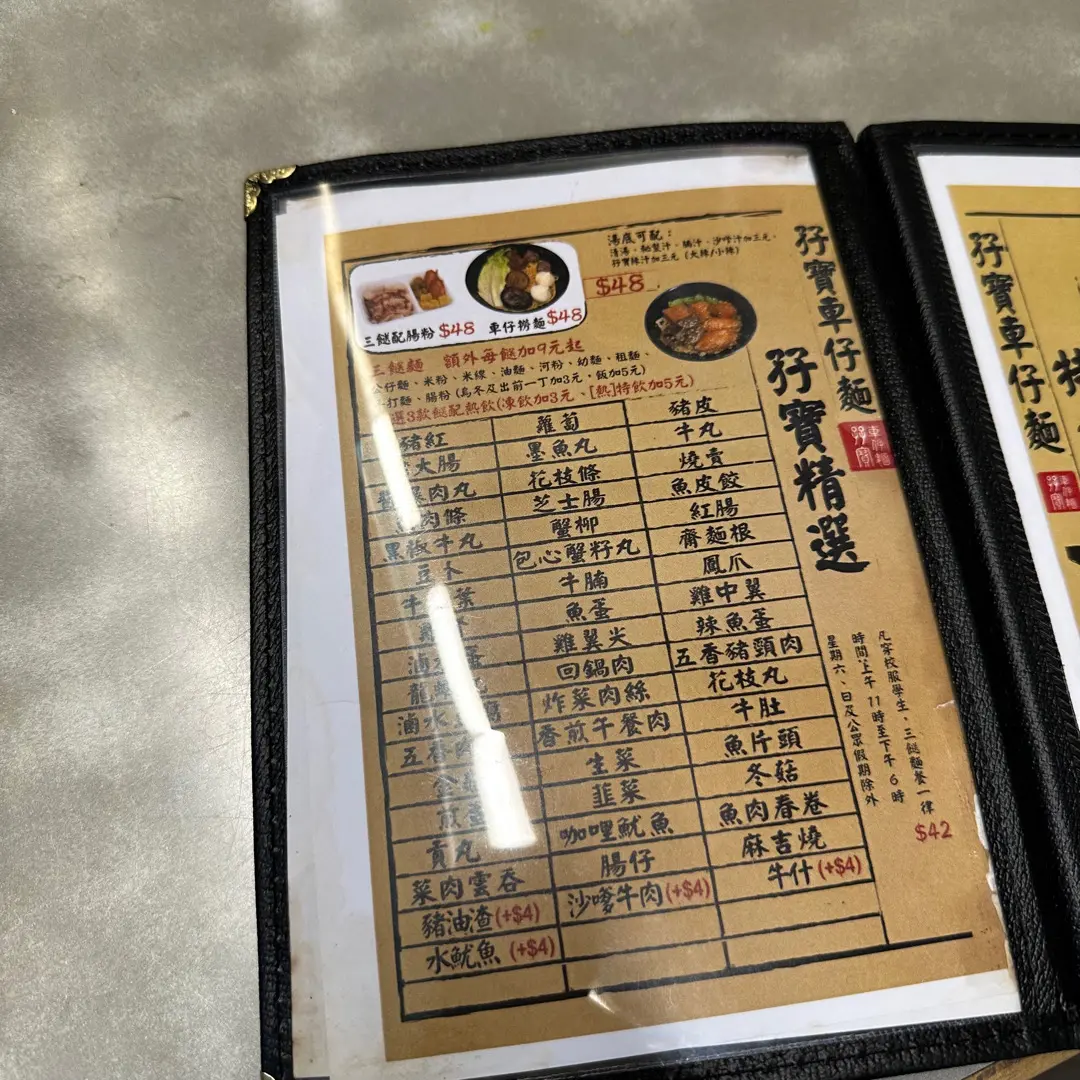 湯底可配：
清湯、秘製汁、腩汁、沙嗲汁加三元、
孖寶辣汁加三元 (大辣/小辣)
三餸配腸粉 $48
車仔撈麵 $48
$48
三餸麵 額外每餸加9元起
公仔麵、米粉、米線、油麵、河粉、幼麵、粗麵、
打麵、腸粉 (烏冬及出前一丁加3元，飯加5元)
選3款餸配熱飲(凍飲加3元、[熱]特飲加5元)
豬紅 蘿蔔 豬皮
大腸 墨魚丸 牛丸
肉丸 花枝條 燒賣
肉條 芝士腸 魚皮餃
黑椒牛丸 蟹柳 紅腸
包心蟹籽丸 齋麵根
牛 牛腩 鳳爪
魚蛋 雞中翼
滷 蛋 雞翼尖 辣魚蛋
龍 回鍋肉 五香豬頸肉
滷水 腐 炸菜肉絲 花枝丸
五香肉 香煎午餐肉 牛肚
金 生菜 魚片頭
煎蛋 韮菜 冬菇
貢丸 咖哩魷魚 魚肉春卷
菜肉雲吞 腸仔 麻吉燒
豬油渣(+$4) 沙嗲牛肉(+$4) 牛什(+$4)
水魷魚 (+$4)
孖寶車仔麵
孖寶
車仔麵
孖寶精選
凡穿校服學生、三餸麵餐一律
$42
時間：上午 11 時至下午 6 時
星期六、日及公眾假期除外
孖寶車仔麵
孖寶
車仔麵
特